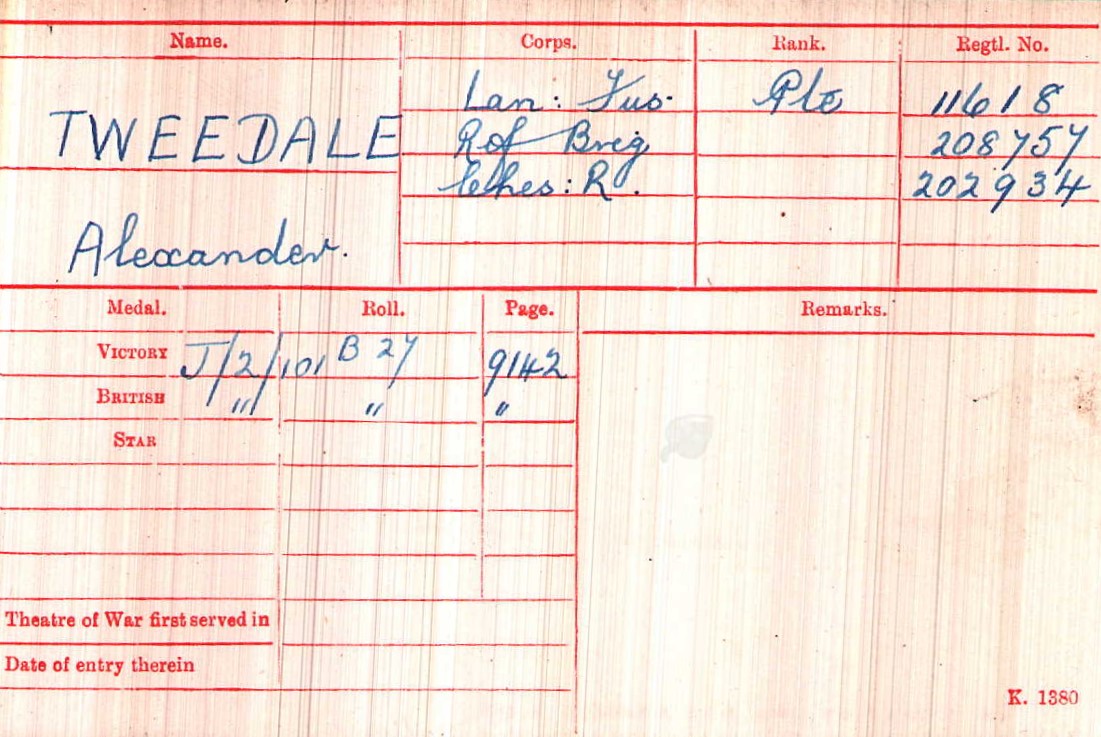 Name. Corps. Rank. Regtl. No.
Lan: Fus. Pte 11618
TWEEDALE R of Brig 208757
Ches: R. 202934
Alexander.
Medal. Roll. Page. Remarks.
VICTORY J/2/101 B 27 9142
BRITISH " " "
STAR
Theatre of War first served in
Date of entry therein
K. 1380